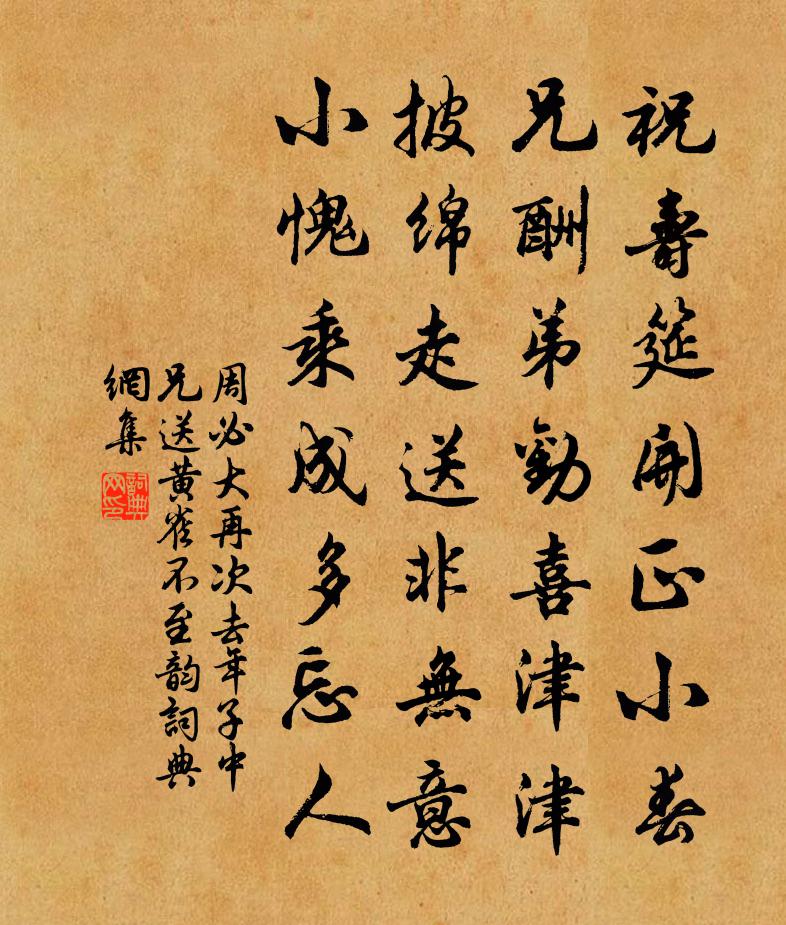 祝壽筵開正小春
兄酬弟勸喜津津
披綿走送非無意
小愧乘成多忘人
周必大再次去年子中
兄送黄雀不至韵詞典
網集
詞典網印